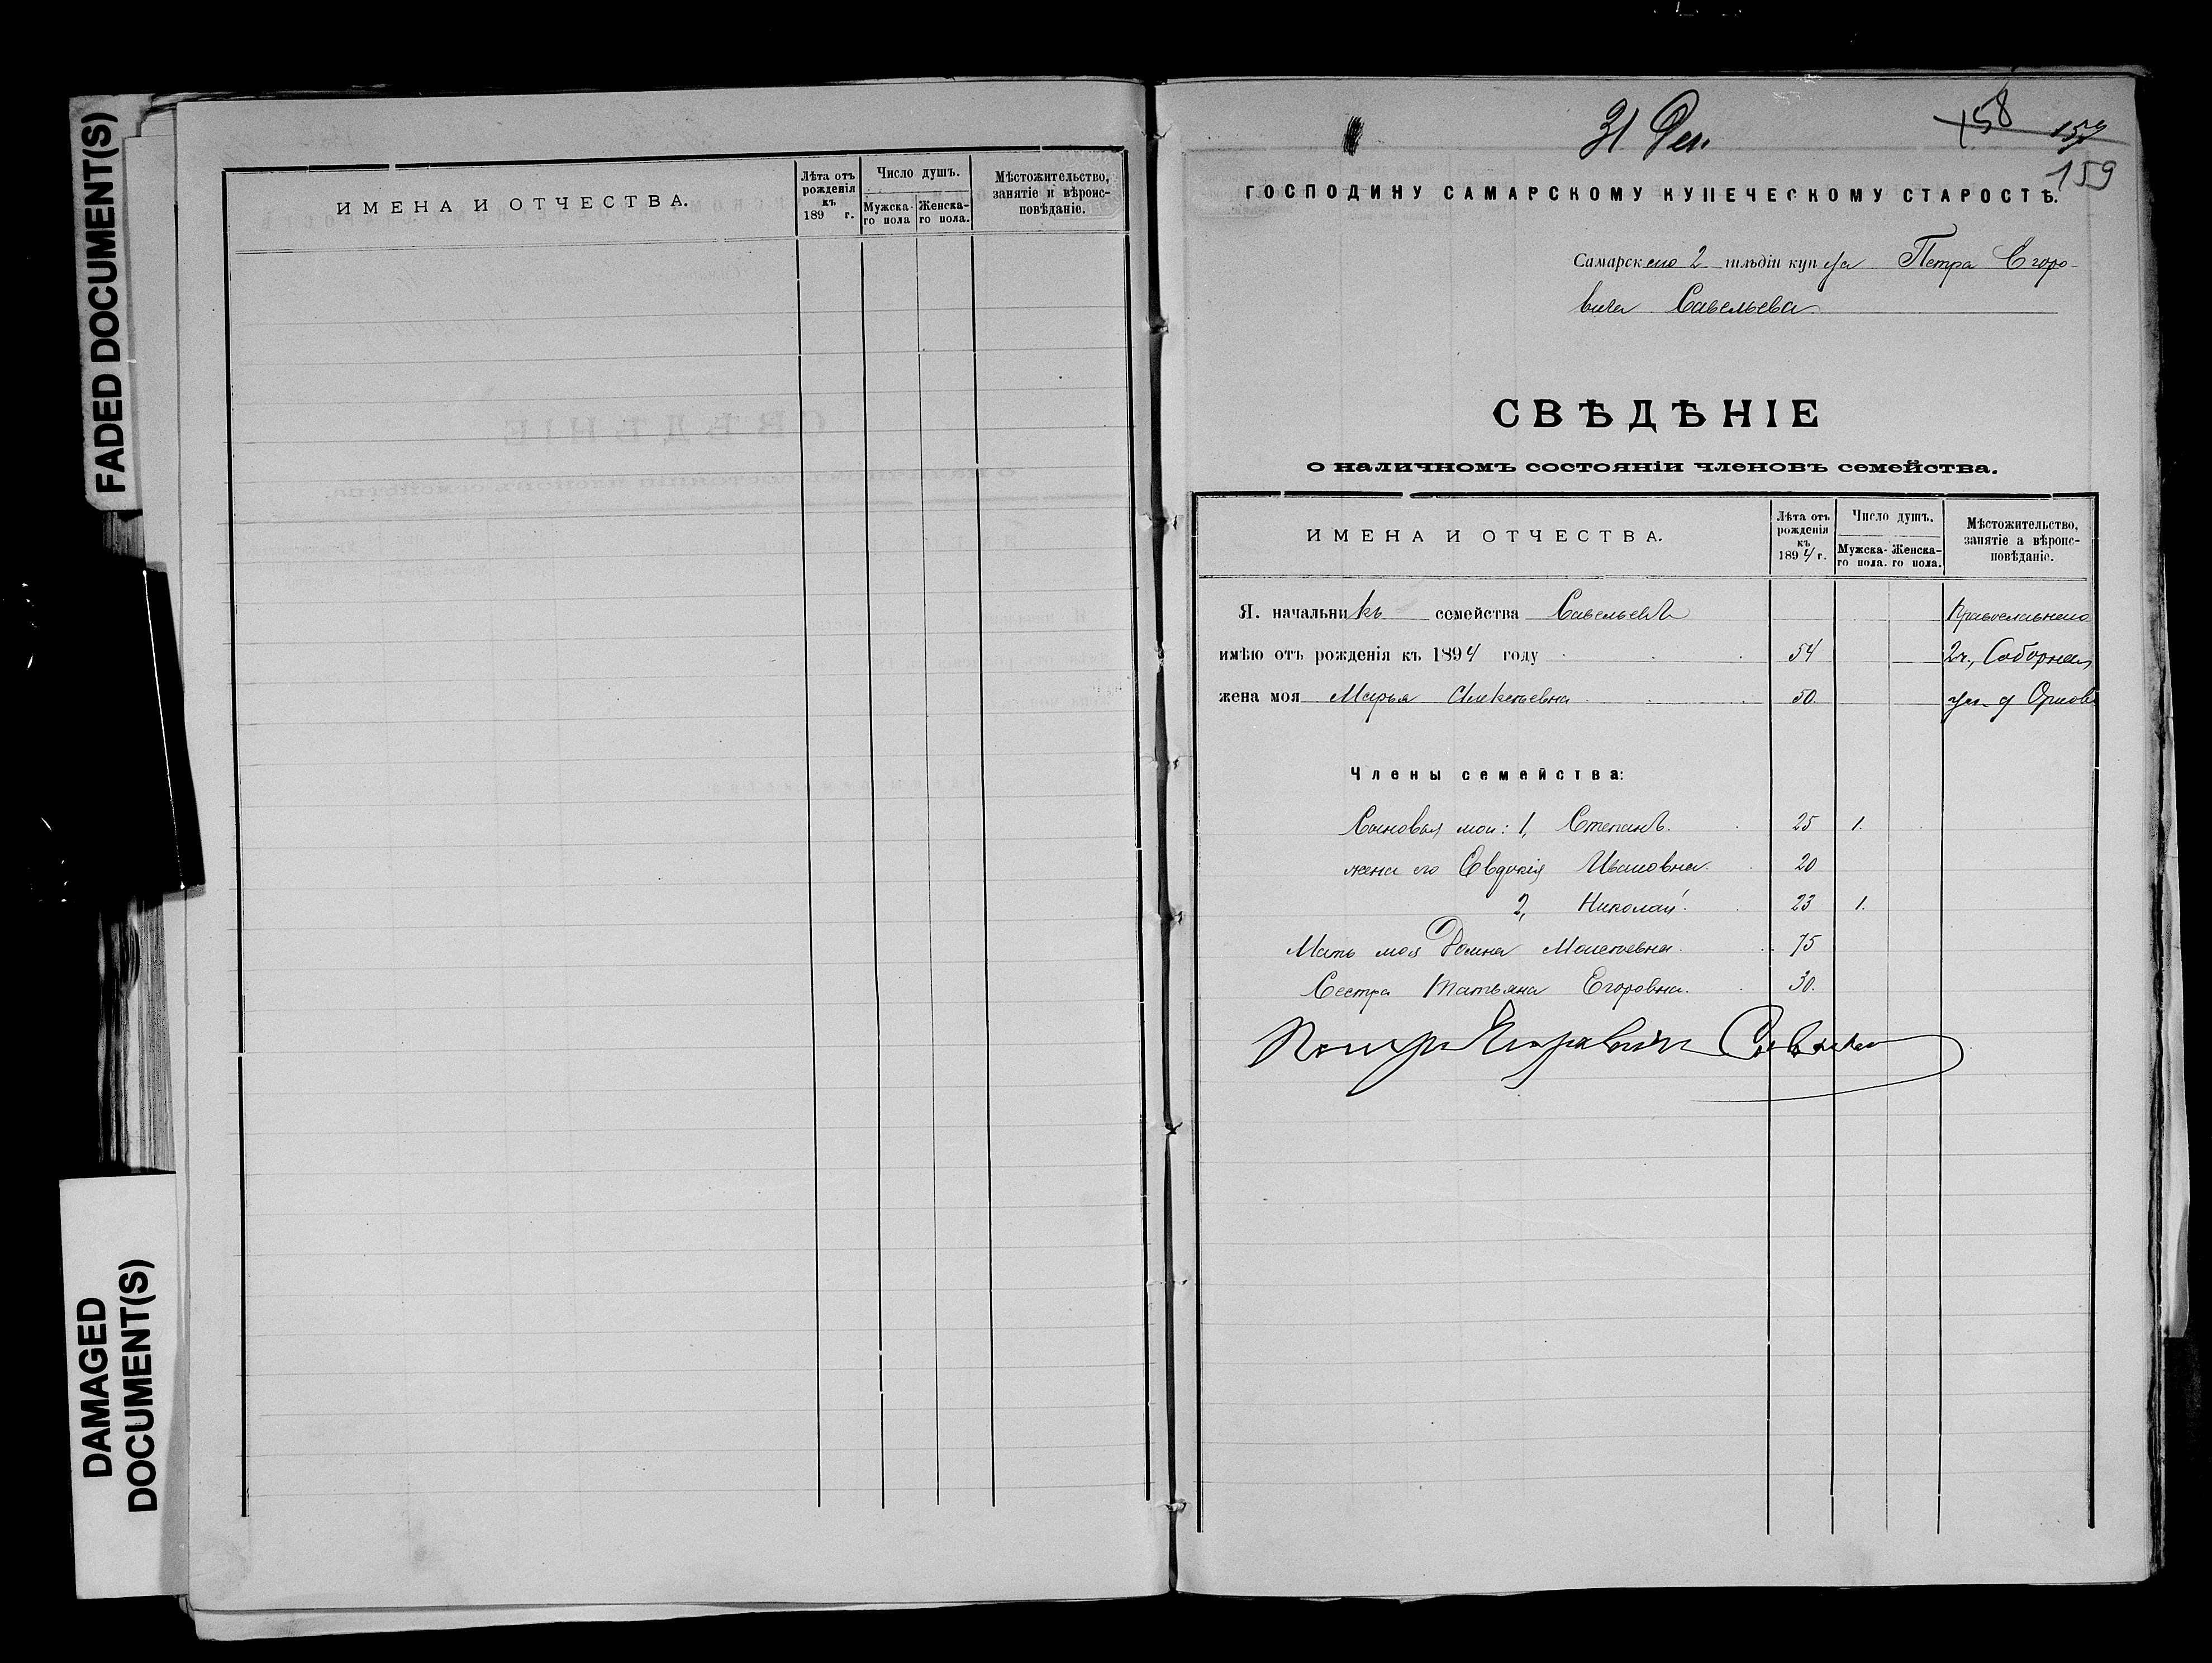 FADED DOCUMENT(S)
DAMAGED
DOCUMENT(S)
ИМЕНА И ОТЧЕСТВА.
Лѣта отъ
рожденія
къ
189 г.
Число душъ.
Мужска-
го пола
Женска-
го пола.
Мѣстожительство,
занятіе и вѣроис-
повѣданіе.
31 Дек.
158
159
ГОСПОДИНУ САМАРСКОМУ КУПЕЧЕСКОМУ СТАРОСТѢ.
Самарскаго 2 гильдіи купца Петра Егоро-
вича Савельева
СВѢДѢНІЕ
о наличномъ состояніи членовъ семейства.
ИМЕНА И ОТЧЕСТВА.
Лѣта отъ
рожденія
къ
1894 г.
Число душъ.
Мужска-
го пола.
Женска-
го пола.
Мѣстожительство,
занятіе а вѣроис-
повѣданіе.
Я. начальникъ семейства Савельевъ Православнаго
имѣю отъ рожденія къ 1894 году 54 2ч., Соборная
жена моя Марья Алексѣевна 50. ул. д
Члены семейства:
Сыновья мои: 1, Степанъ. 25 1.
жена его Евдокія Ивановна. 20
2, Николай. 23 1.
Мать моя 75
Сестра Татьяна Егоровна. 30.
Петръ Егоровичъ Савельев